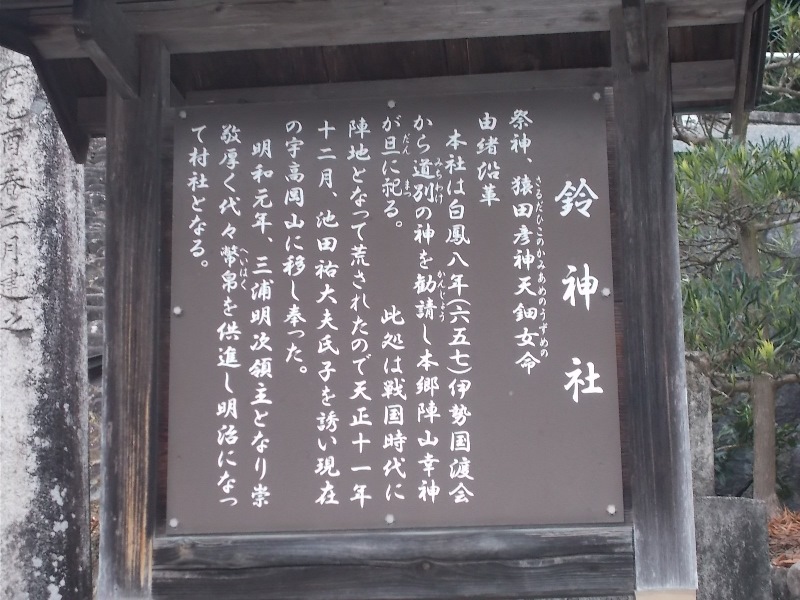 鈴神社
祭神、猿田彦神天鈿女命
さるだひこのかみあめのうずめの
由緒沿革
本社は白鳳八年(六五七)伊勢国渡会
から道別の神を勧請し本郷陣山幸神
みちわけ
かんじょう
が旦に祀る。 此処は戦国時代に
だん
まつ
陣地となって荒されたので天正十一年
十二月、池田祐大夫氏子を誘い現在
の宇高岡山に移し奉った。
明和元年、三浦明次領主となり崇
敬厚く代々幣帛を供進し明治になっ
へいはく
て村社となる。
己酉
三月建之